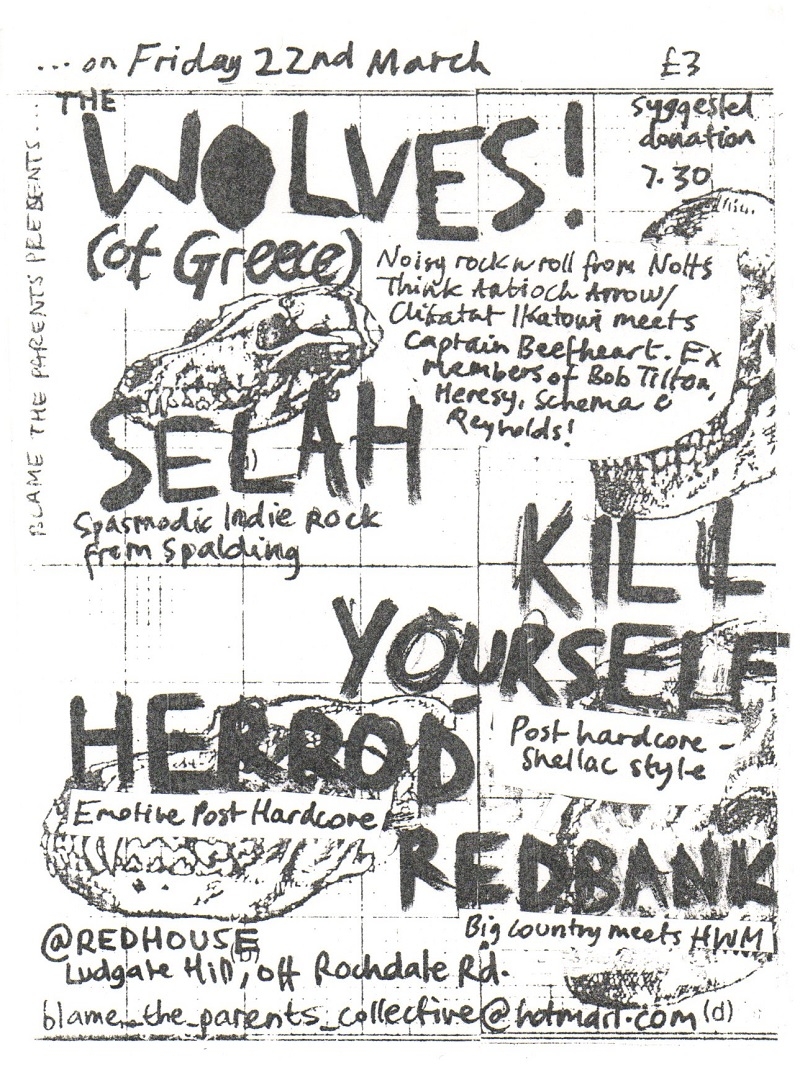 ... on Friday 22nd March
£3
suggested
donation
7.30
BLAME THE PARENTS PRESENTS...
THE
WOLVES!
(of Greece)
Noisy rock n roll from Notts
Think Antioch Arrow/
Clikatat Ikatowi meets
Captain Beefheart. Ex
members of Bob Tilton,
Heresy, Schema &
Reynolds!
SELAH
Spasmodic Indie Rock
from Spalding
KILL
YOURSELF
Post hardcore -
Shellac style
HERROD
Emotive Post Hardcore
REDBANK
Big Country meets HWM
@REDHOUSE
Ludgate Hill, off Rochdale Rd.
blame_the_parents_collective@hotmail.com (d)